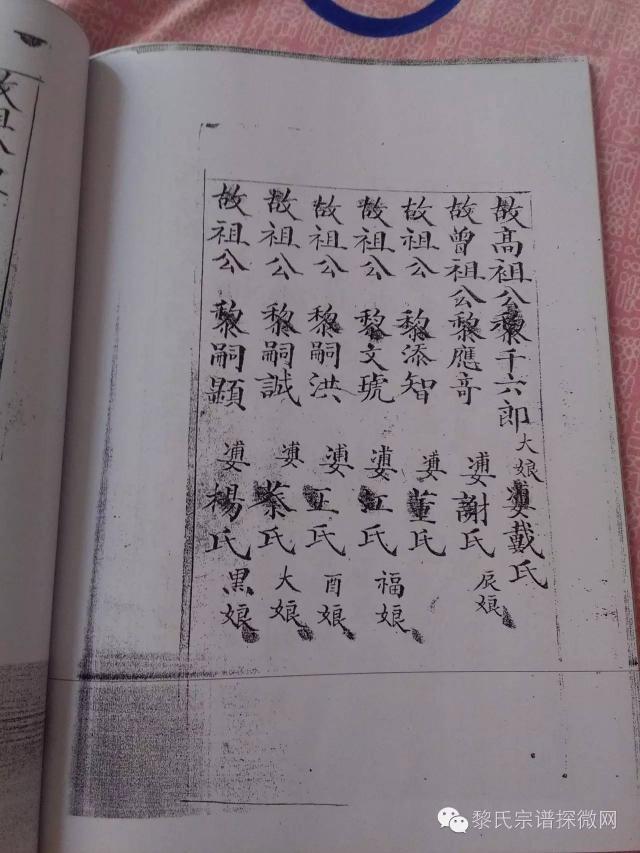 故高祖公黎千六郎大娘婆戴氏
故曾祖公黎應哥婆謝氏辰娘
故祖公黎添智婆董氏
故祖公黎文琥婆江氏福娘
故祖公黎嗣洪婆王氏酉娘
故祖公黎嗣誠婆蔡氏大娘
故祖公黎嗣顯婆楊氏黑娘
故祖公
黎氏宗谱探微网